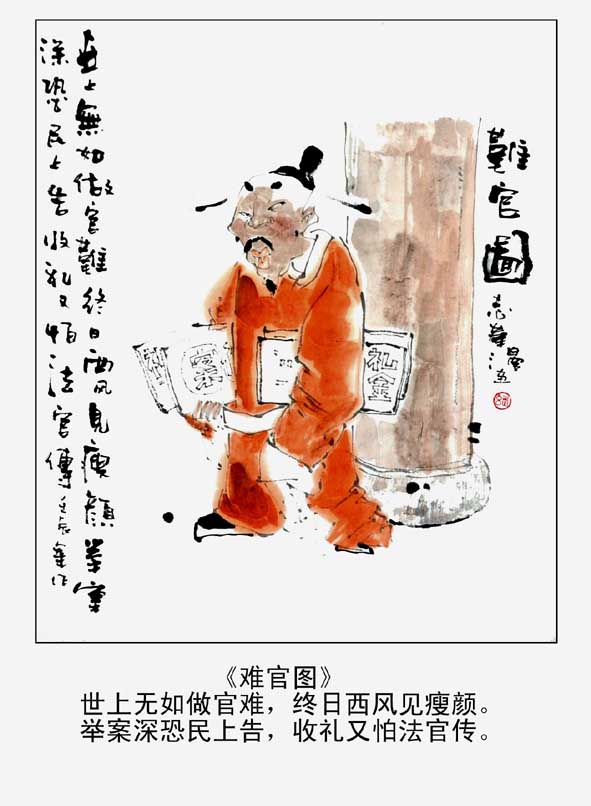 難官圖
礼金
世上無如做官難终日西风見瘦顔举案
深恐民上告收礼又怕法官傳
《难官图》
世上无如做官难，终日西风见瘦颜。
举案深恐民上告，收礼又怕法官传。